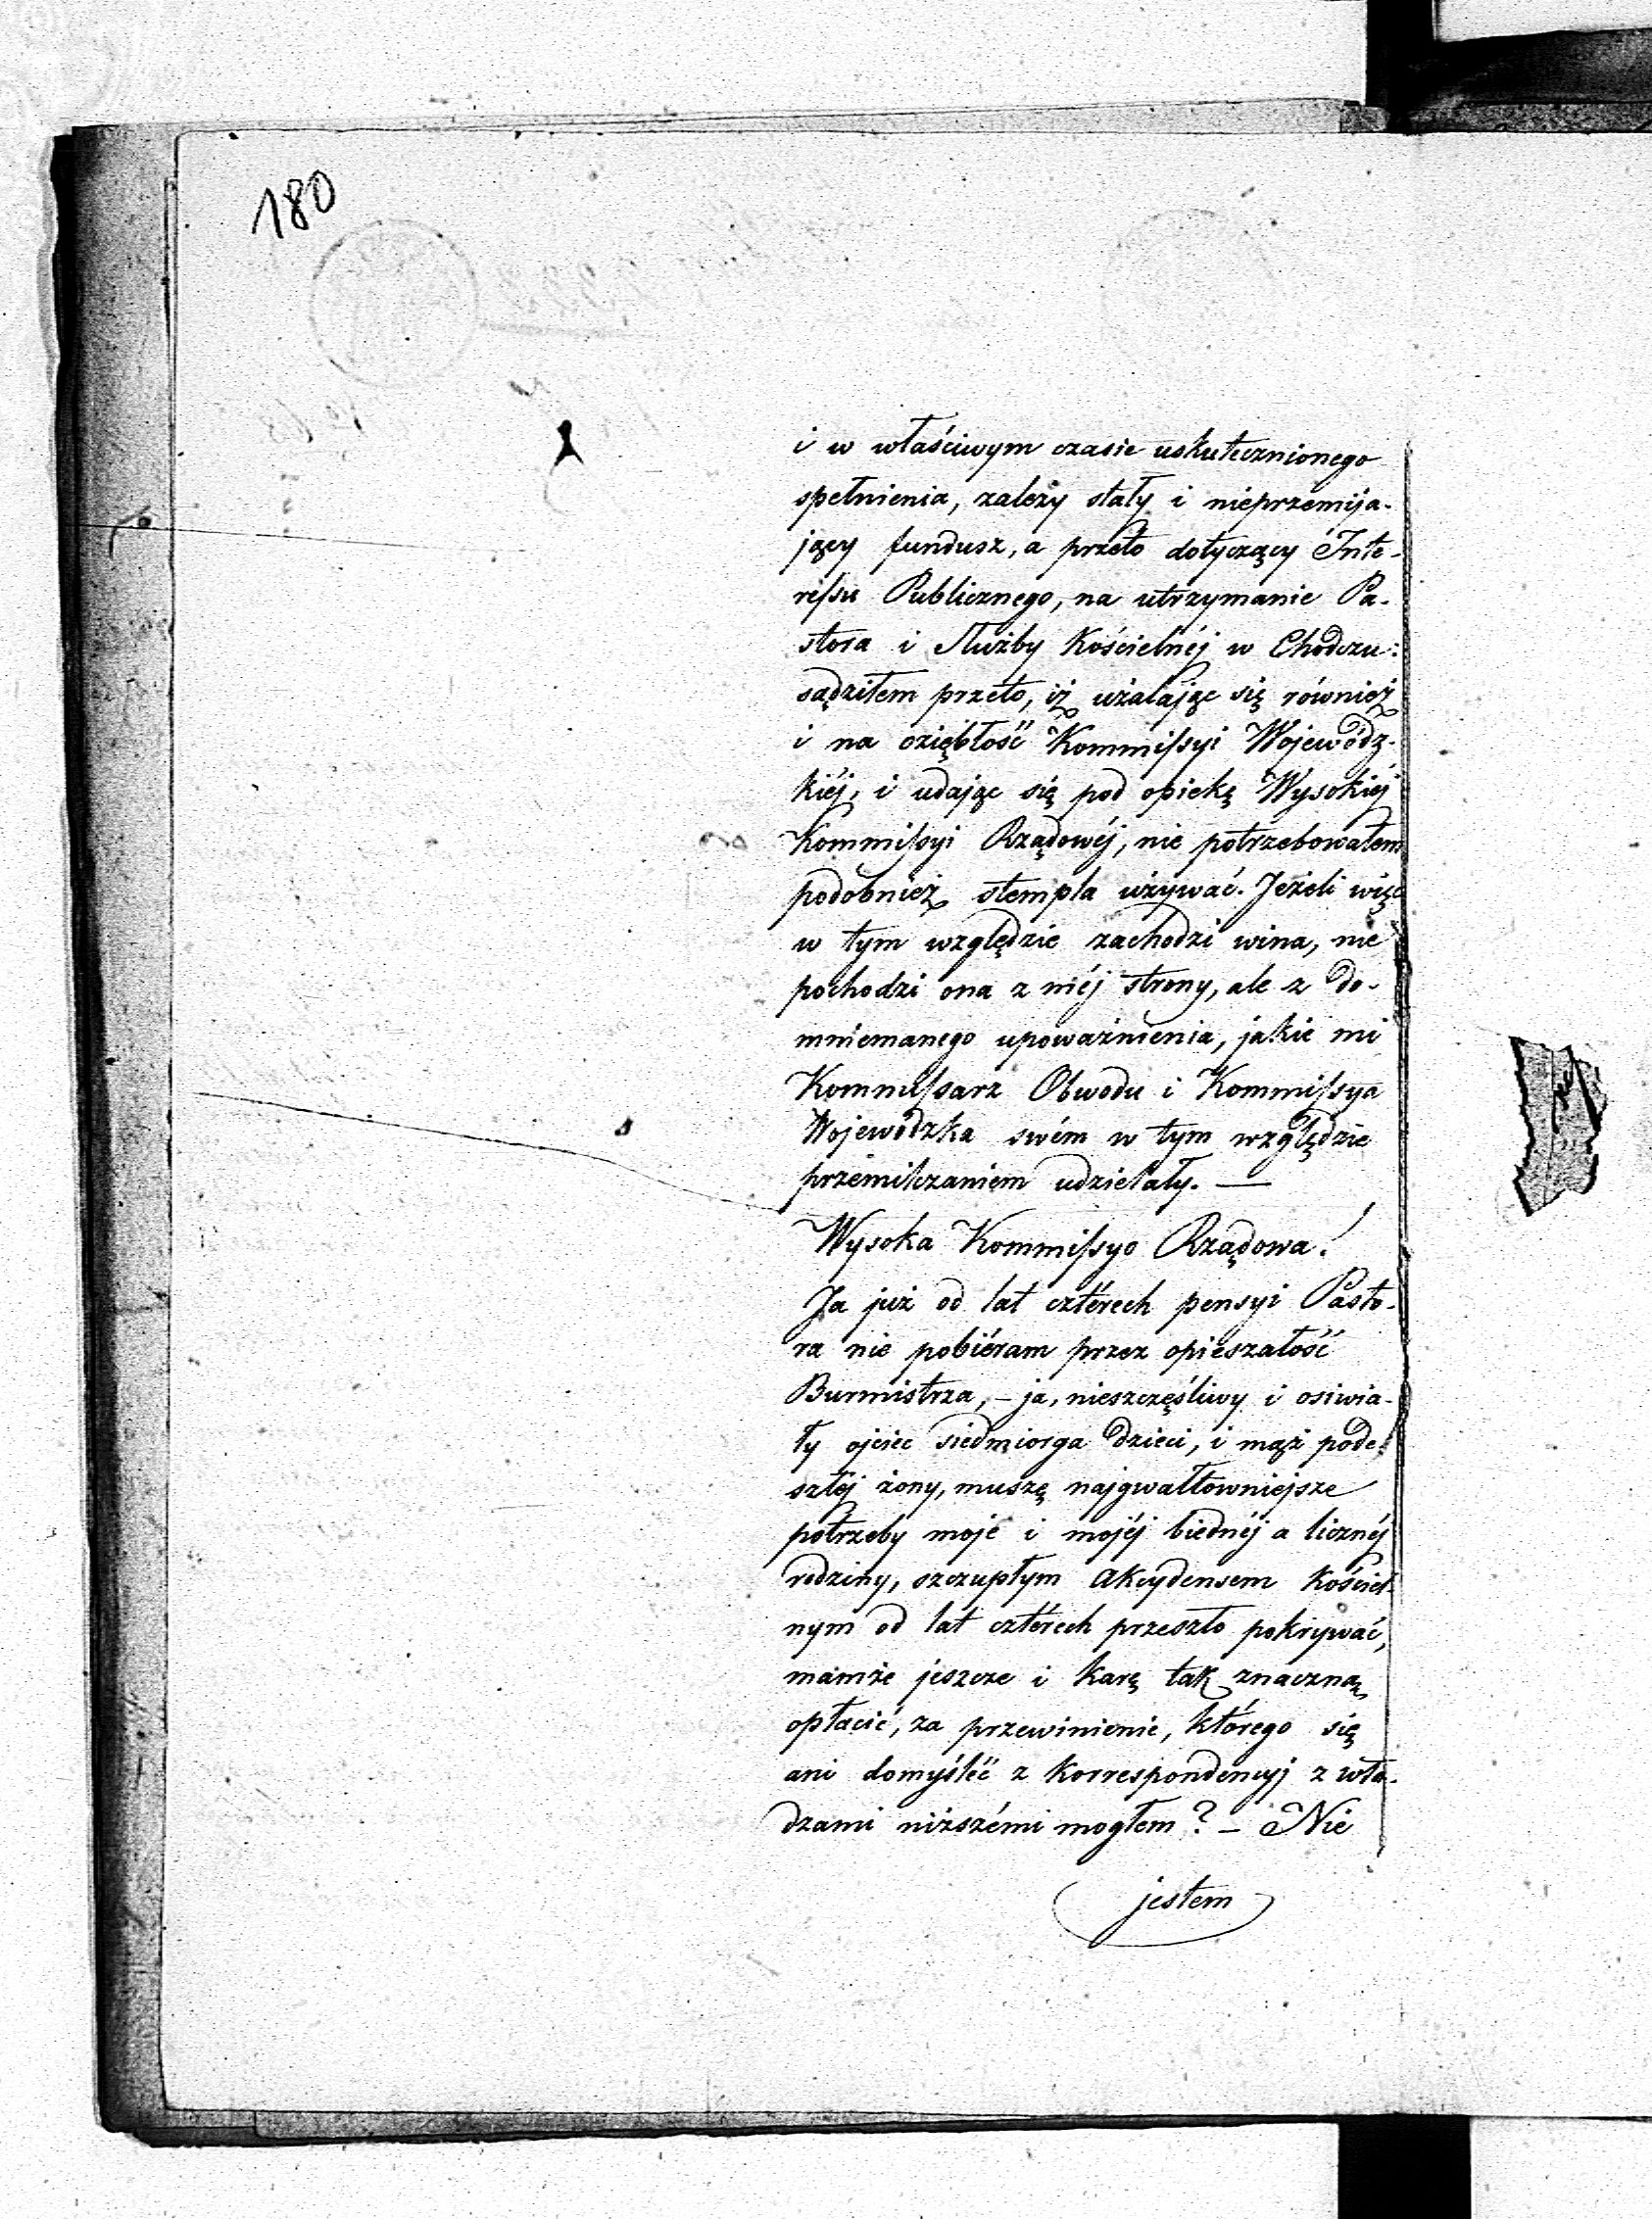 180
i w właściwym czasie uskutecznionego
spełnienia, zależy stały i nieprzemija-
jący fundusz, a przeto dotyczący Inte-
ressu Publicznego, na utrzymanie Pa-
stora i Służby Kościelnéj w Chodczu:
sądziłem przeto, iż użalając się również
i na oziębłość Kommissyi Wojewódz-
kiéj, i udając się pod opiekę Wysokiéj
Kommissyi Rządowéj, nie potrzebowałem
podobnież stempla używać. Jeżeli więc
w tym względzie zachodzi wina, nie
pochodzi ona z méj strony, ale z do-
mniemanego upoważnienia, jakie mi
Kommissarz Obwodu i Kommissya
Wojewódzka swém w tym względzie
przemilczaniem udzielały. —
Wysoka Kommissyo Rządowa!
Ja już od lat czterech pensyi Pasto-
ra nie pobiéram przez opieszałość
Burmistrza, – ja, nieszczęśliwy i osiwia-
ły ojciec siedmiorga dzieci, i mąż pode-
szłéj żony, muszę najgwałtowniejsze
potrzeby moje i mojéj biednéj a licznéj
rodziny, szczupłym akcydensem Kościel-
nym od lat czterech przeszło pokrywać,
mamże jeszcze i karę tak znaczną
opłacić, za przewinienie, którego się
ani domyśleć z korrespondencyj z wła-
dzami niższémi mogłem? – Nie
jestem